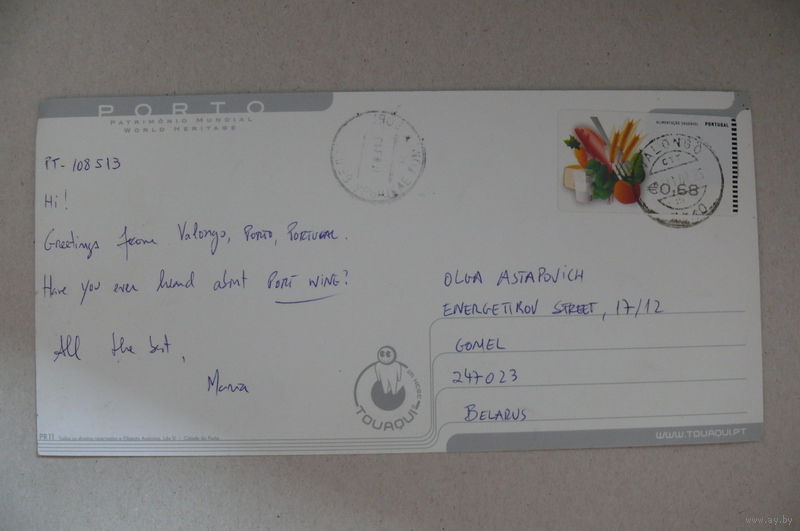 PORTO
PATRIMÓNIO MUNDIAL
WORLD HERITAGE
PT-108513
Hi!
Greetings from Valongo, PORTO, PORTUGAL.
Have you ever heard about PORT WINE?
All the best,
Maria
ALIMENTAÇÃO SAUDÁVEL PORTUGAL
VALONGO
€0,68
OLGA ASTAPOVICH
ENERGETIKOV STREET, 17/12
GOMEL
247023
BELARUS
TOUAQUI
PR11 Todos os direitos reservados
WWW.TOUAQUI.PT
www.ay.by